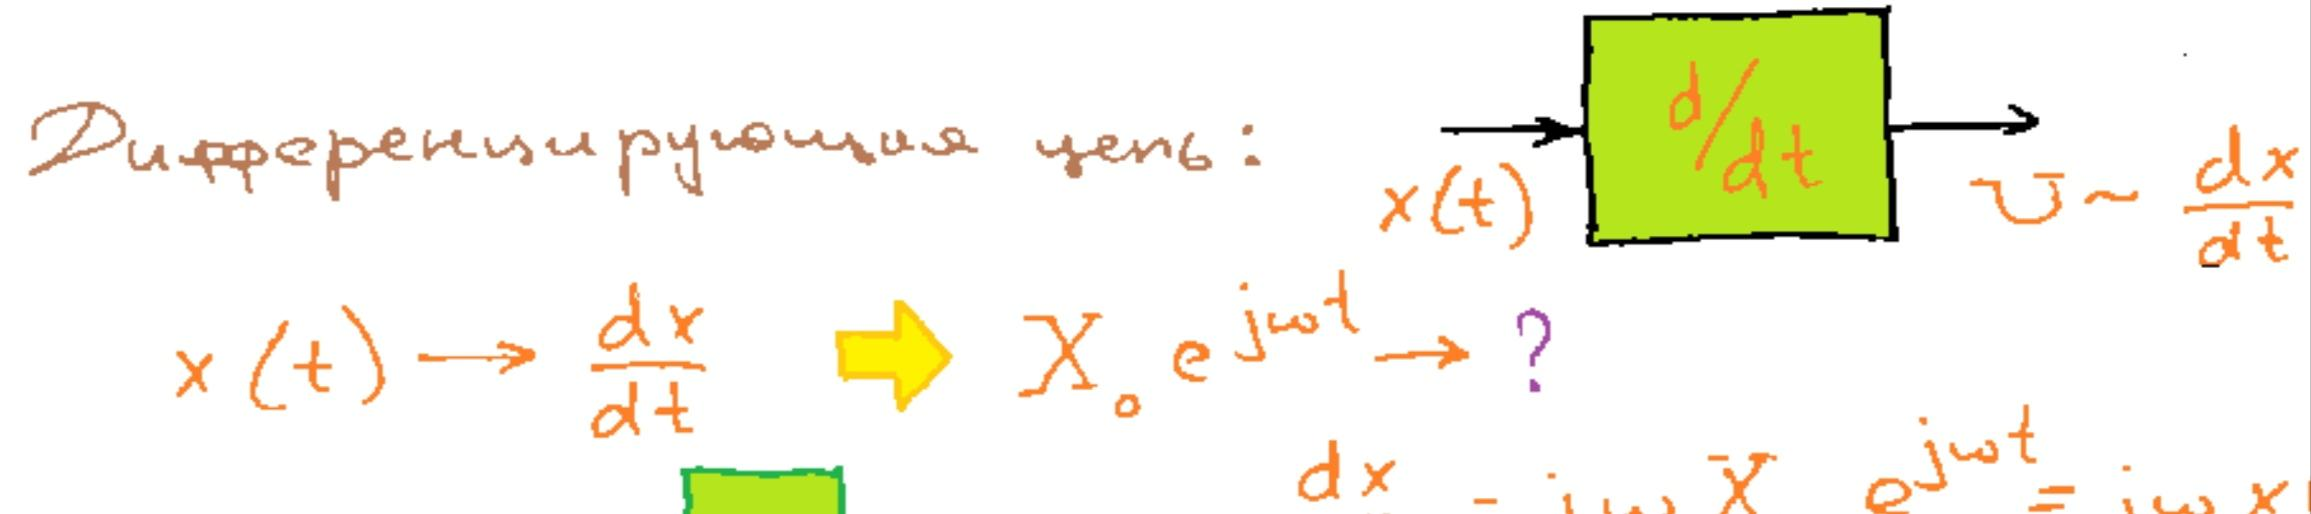 Дифференцирующая цепь:
d/dt
x(t)
U ~ dx/dt
x(t) → dx/dt ⇨ X₀ e^{jωt} → ?
dx = jω X e^{jωt} = jω x